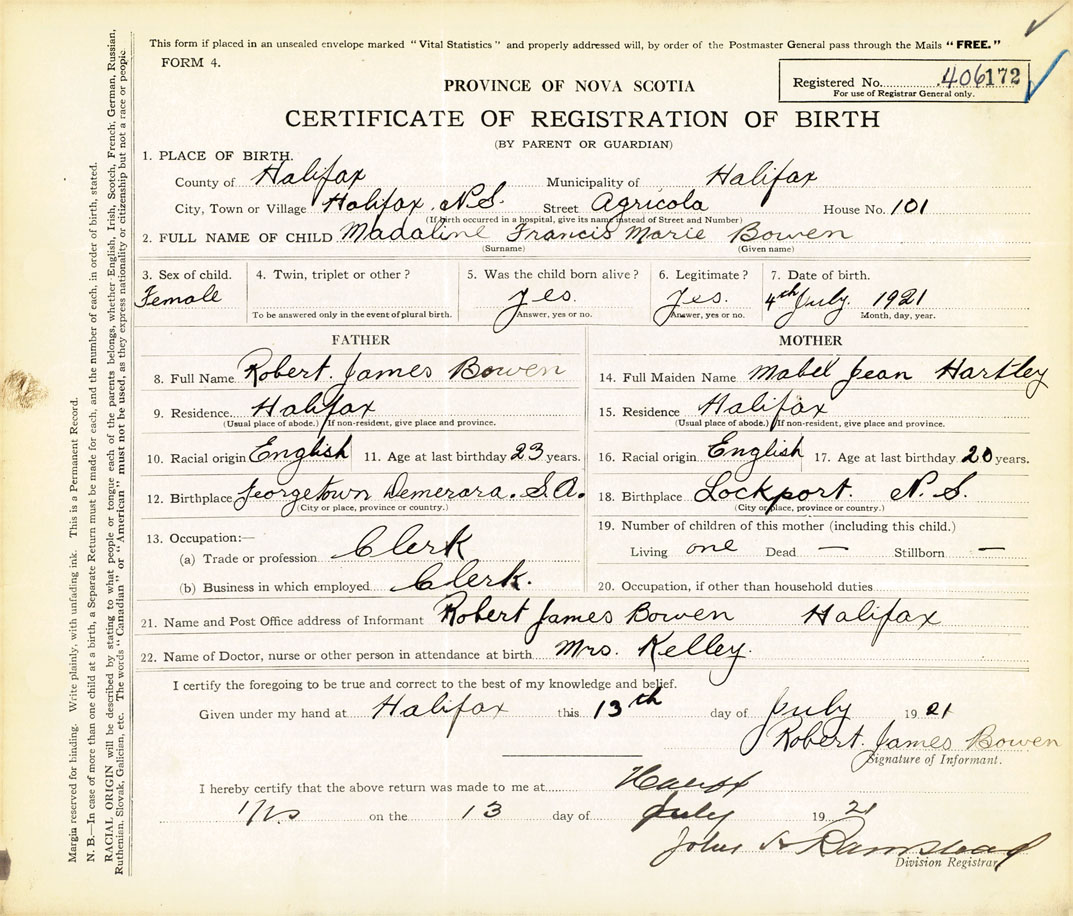 This form if placed in an unsealed envelope marked "Vital Statistics" and properly addressed will, by order of the Postmaster General pass through the Mails "FREE."
FORM 4.
Registered No. 406172
For use of Registrar General only.
PROVINCE OF NOVA SCOTIA
CERTIFICATE OF REGISTRATION OF BIRTH
(BY PARENT OR GUARDIAN)
1. PLACE OF BIRTH.
County of Halifax Municipality of Halifax
City, Town or Village Halifax N.S. Street Agricola House No. 101
(If birth occurred in a hospital, give its name instead of Street and Number)
2. FULL NAME OF CHILD Madaline Francis Marie Bowen
(Surname) (Given name)
3. Sex of child. 4. Twin, triplet or other? 5. Was the child born alive? 6. Legitimate? 7. Date of birth.
Female yes. yes. 4th July. 1921
To be answered only in the event of plural birth. Answer, yes or no. Answer, yes or no. Month, day, year.
FATHER
8. Full Name Robert James Bowen
9. Residence Halifax
(Usual place of abode.) If non-resident, give place and province.
10. Racial origin English 11. Age at last birthday 23 years.
12. Birthplace Georgetown Demerara. S.A.
(City or place, province or country.)
13. Occupation:—
(a) Trade or profession Clerk
(b) Business in which employed Clerk.
MOTHER
14. Full Maiden Name Mabel Jean Hartley
15. Residence Halifax
(Usual place of abode.) If non-resident, give place and province.
16. Racial origin English 17. Age at last birthday 20 years.
18. Birthplace Lockport. N.S.
(City or place, province or country.)
19. Number of children of this mother (including this child.)
Living one Dead — Stillborn —
20. Occupation, if other than household duties
21. Name and Post Office address of Informant Robert James Bowen Halifax
22. Name of Doctor, nurse or other person in attendance at birth Mrs. Kelley.
I certify the foregoing to be true and correct to the best of my knowledge and belief.
Given under my hand at Halifax this 13th day of July 1921
Robert James Bowen
Signature of Informant.
I hereby certify that the above return was made to me at Halifax
on the 13 day of July 1921
John A
Division Registrar
Margin reserved for binding. Write plainly, with unfading ink. This is a Permanent Record.
N. B.—In case of more than one child at a birth, a Separate Return must be made for each, and the number of each, in order of birth, stated.
RACIAL ORIGIN will be described by stating to what people or tongue each of the parents belongs, whether English, Irish, Scotch, French, German, Russian,
Ruthenian, Slovak, Galician, etc. The words "Canadian" or "American" must not be used, as they express nationality or citizenship but not a race or people